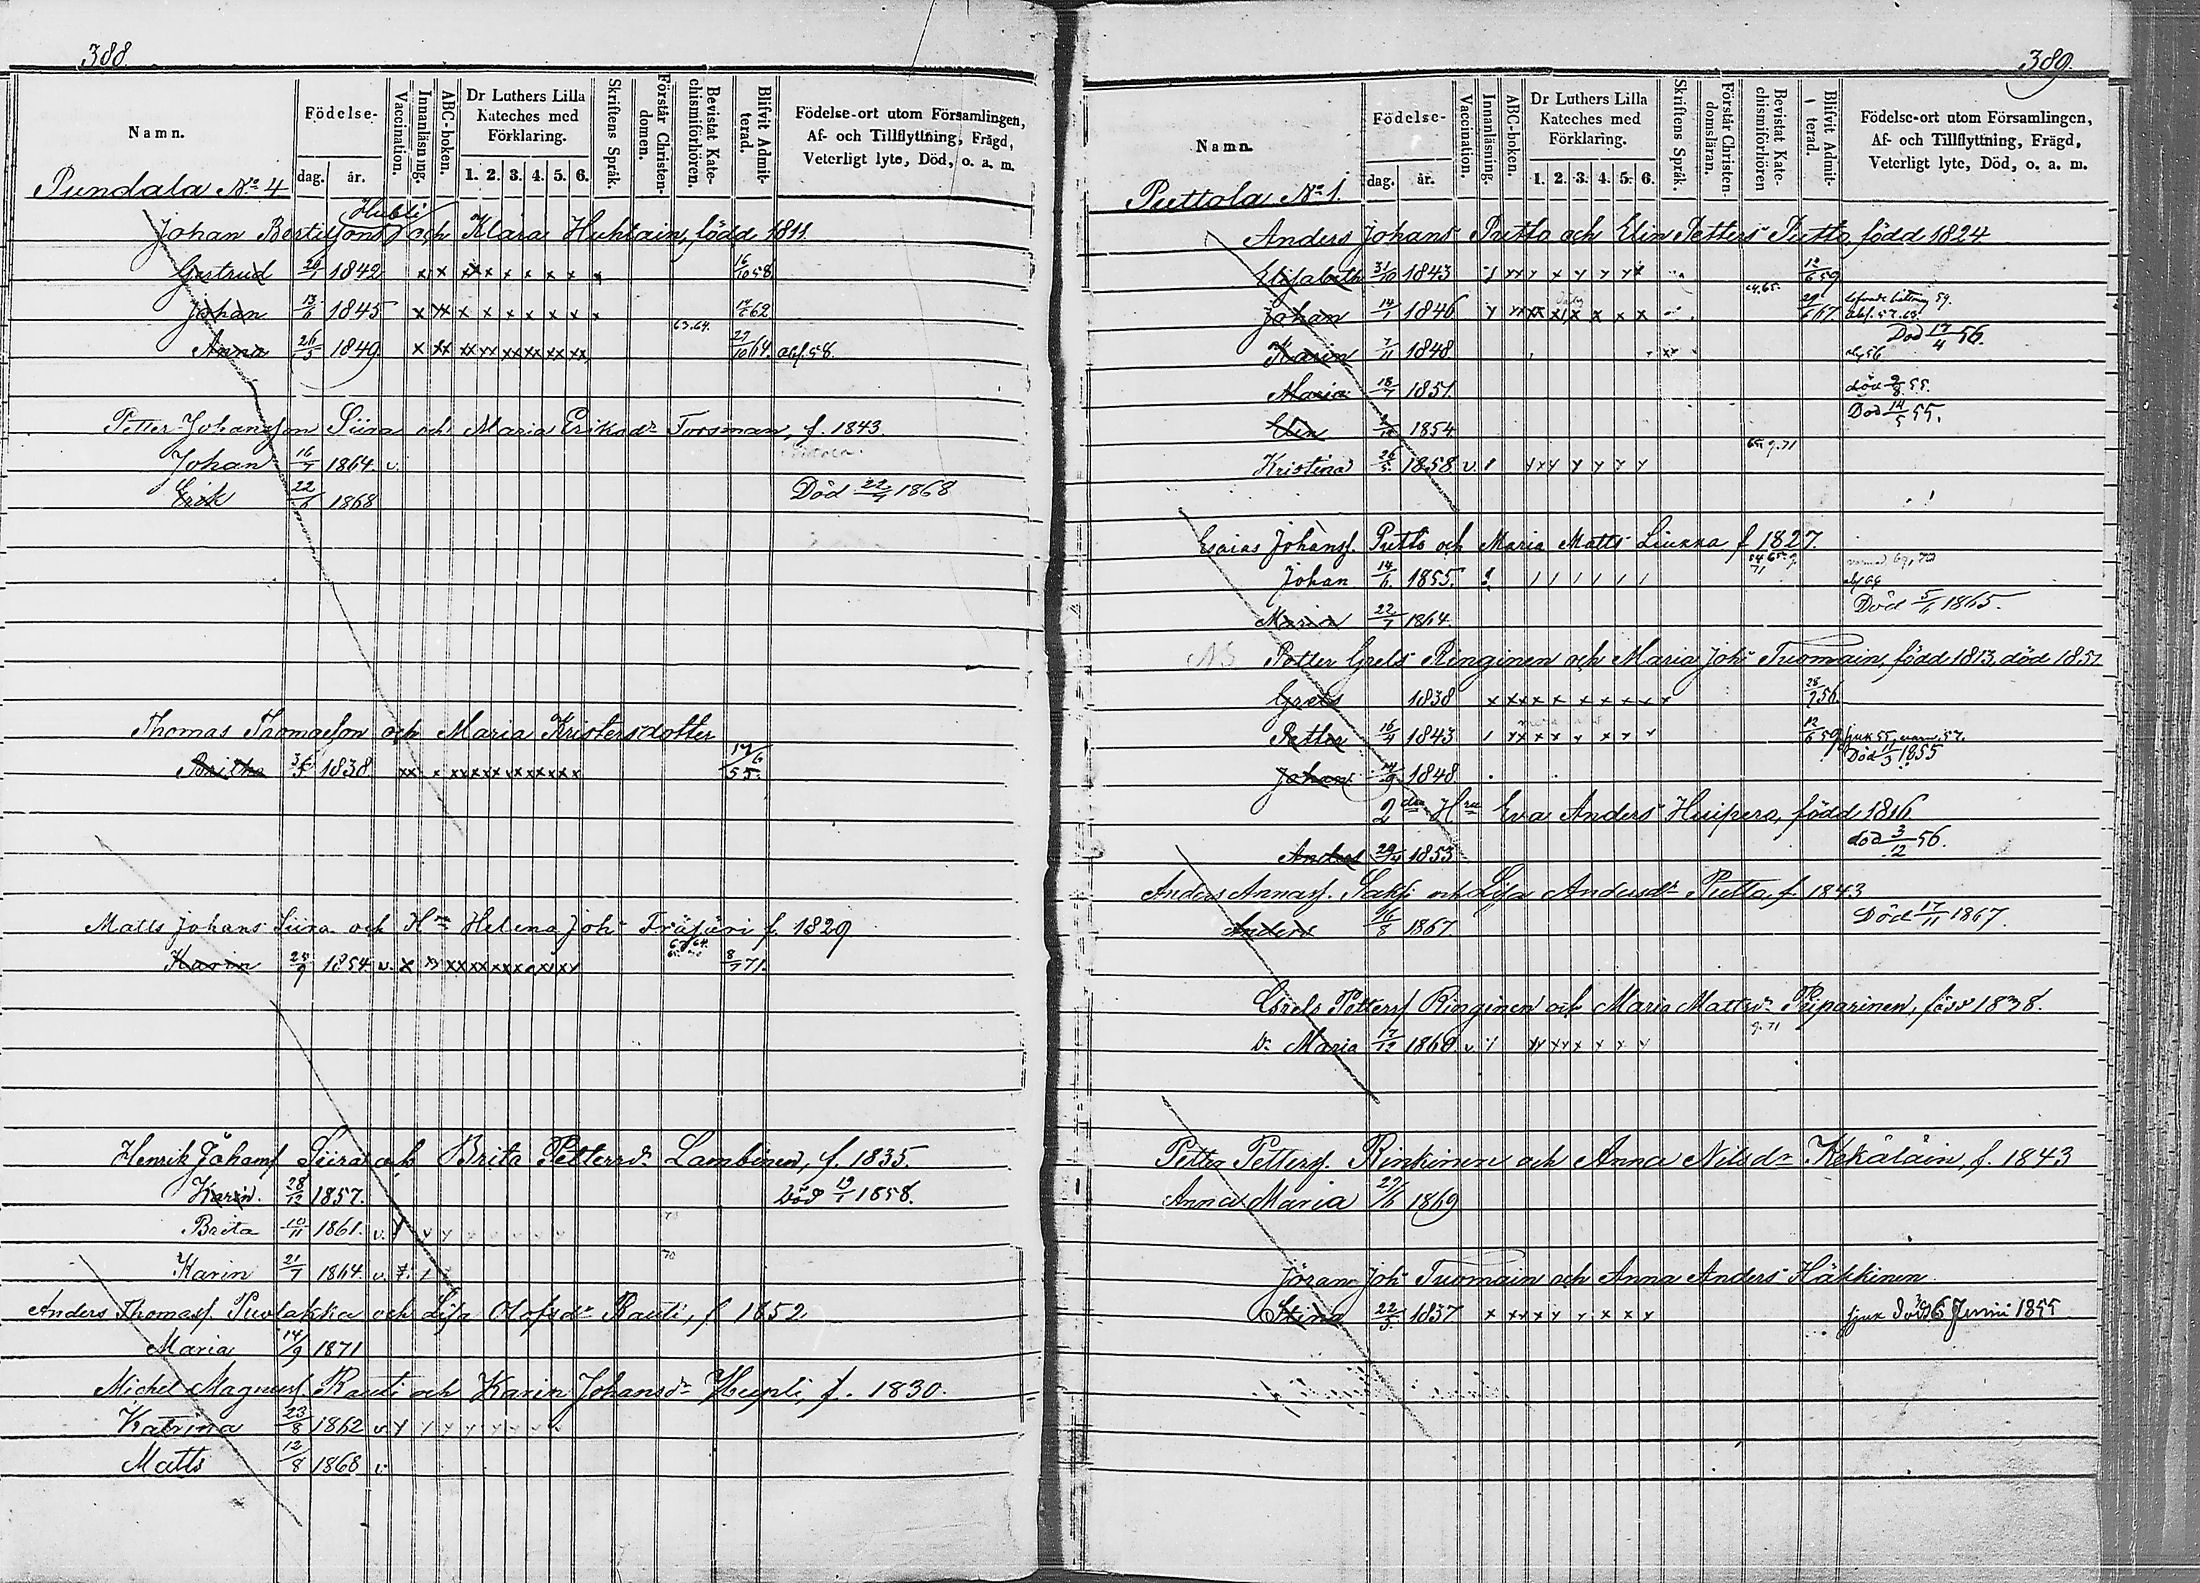 388
Namn.
Födelse-
dag. år.
Vaccination.
Innanläsning.
ABC-boken.
Dr Luthers Lilla
Kateches med
Förklaring.
1. 2. 3. 4. 5. 6.
Skriftens Språk.
Förstår Christen-
domen.
Bevistat Kate-
chismiförhören.
Blifvit Admit-
terad.
Födelse-ort utom Församlingen,
Af- och Tillflyttning, Frägd,
Veterligt lyte, Död, o. a. m.
Pundala No 4
Johan Bertilsons och Klara Huhtain, född 1811.
Gertrud 1842 x x xx x x x x x 16/10 58
Johan 1845 x xx x x x x x x x 62
63.64.
Anna 26/5 1849 x xx xx xx xx xx xx xx 27/10 64 abs. 58.
Petter Johansson Siira och Maria Eriksdr Forsman, f. 1843.
Johan 16/7 1864 v.
Erik 22/6 1868 Död 22/7 1868
Thomas Thomasson och Maria Kristersdotter
Britha 1838 xx x xx xx xx xx xx xx 55.
Matts Johans Siira och Hru Helena Johs f. 1829
Karin 25/9 1854 v. x xx xx xx xx xx xx 8/7 71.
Henrik Johanss Siira och Brita Pettersdr Lambinen, f. 1835.
Karin. 28/12 1857. Död 19/1 1858.
Brita 10/11 1861. v.
70
Karin 21/7 1864. v.
Anders Thomass. Puolakka och Lisa Olofsdr Rauti, f 1852
Maria 14/9 1871
Michel Magnuss Rauti och Karin Johansdr Hupli, f. 1830.
Katrina 23/8 1862 v
Matts 12/8 1868 v.
389
Namn.
Födelse-
dag. år.
Vaccination.
Innanläsning.
ABC-boken.
Dr Luthers Lilla
Kateches med
Förklaring.
1. 2. 3. 4. 5. 6.
Skriftens Språk.
Förstår Christen-
domsläran.
Bevistat Kate-
chismiförhören
Blifvit Admit-
terad.
Födelse-ort utom Församlingen,
Af- och Tillflyttning, Frägd,
Veterligt lyte, Död, o. a. m.
Puttola No 1.
Anders Johans Putto och Elin Petters Putto född 1824
Elisabeth 31/10 1843 12/6 59
Johan 14/1 1846 67
Död 17/4 56.
Karin 7/11 1848
Maria 18/7 1851. död 9/8 55.
Död 14/5 55.
Elin 1854
65. g. 71
Kristina 26/5 1858 v.
Esaias Johanss. Putto och Maria Matts Liukka f 1827.
Johan 14/6 1855.
Död 5/11 1865.
Maria 22/7 1864.
Petter Grels Ringinen och Maria Johs Tuomain, född 1813, död 1851
Grels 1838 x xx xx x x x x x x 28/9 56.
Petter 16/9 1843 12/6 59
Död 11/3 1855
Johan 14/9 1848
2dra Hru Eva Anders Huipero, född 1816
död 3/12 56.
Anders 29/4 1853
Anders Annass. Saksi och Lisa Andersdr Putto, f. 1843
Anders 16/8 1867. Död 17/11 1867.
Grels Petterss Ringinen och Maria Mattsdr Piiparinen, född 1838.
g. 71
Dr Maria 17/12 1860. v.
Petter Petterss. Rinkinen och Anna Nilsdr Kekäläin, f. 1843
Anna Maria 29/6 1869
Jöran Johs Tuomain och Anna Anders Häkkinen
Stina 22/3 1837 Juni 1855